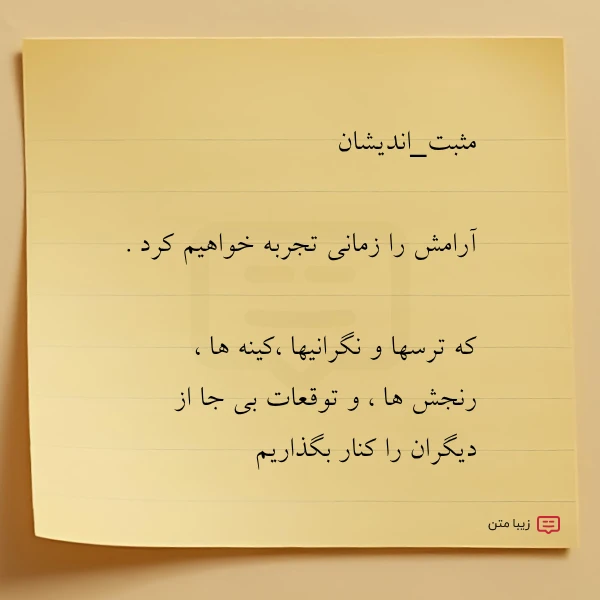 مثبت_اندیشان
آرامش را زمانی تجربه خواهیم کرد .
که ترسها و نگرانیها ،کینه ها ،
رنجش ها ، و توقعات بی جا از
دیگران را کنار بگذاریم
زیبا متن